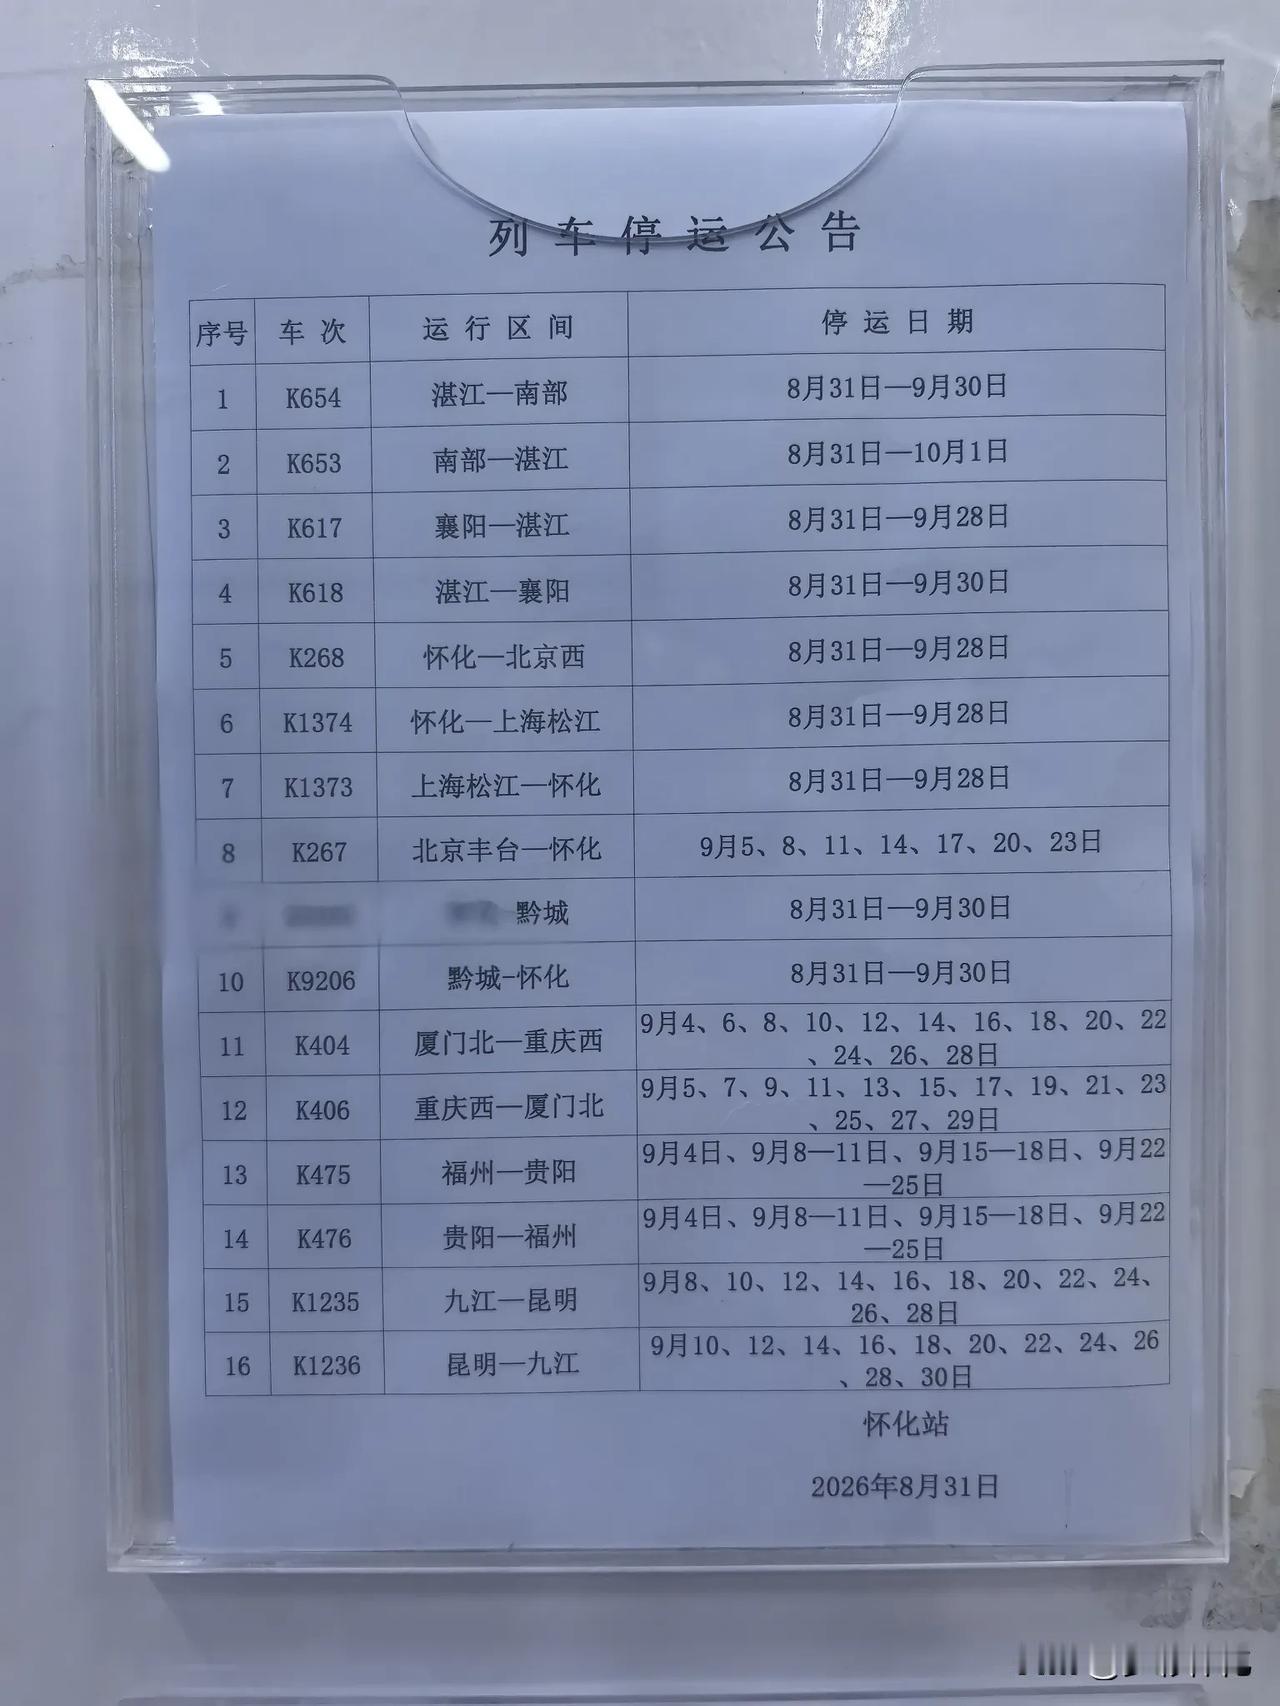 列车停运公告
序号 车次 运行区间 停运日期
1 K654 湛江—南部 8月31日—9月30日
2 K653 南部—湛江 8月31日—10月1日
3 K617 襄阳—湛江 8月31日—9月28日
4 K618 湛江—襄阳 8月31日—9月30日
5 K268 怀化—北京西 8月31日—9月28日
6 K1374 怀化—上海松江 8月31日—9月28日
7 K1373 上海松江—怀化 8月31日—9月28日
8 K267 北京丰台—怀化 9月5、8、11、14、17、20、23日
黔城 8月31日—9月30日
10 K9206 黔城-怀化 8月31日—9月30日
11 K404 厦门北—重庆西 9月4、6、8、10、12、14、16、18、20、22
、24、26、28日
12 K406 重庆西—厦门北 9月5、7、9、11、13、15、17、19、21、23
、25、27、29日
13 K475 福州—贵阳 9月4日、9月8—11日、9月15—18日、9月22
—25日
14 K476 贵阳—福州 9月4日、9月8—11日、9月15—18日、9月22
—25日
15 K1235 九江—昆明 9月8、10、12、14、16、18、20、22、24、
26、28日
16 K1236 昆明—九江 9月10、12、14、16、18、20、22、24、26
、28、30日
怀化站
2026年8月31日